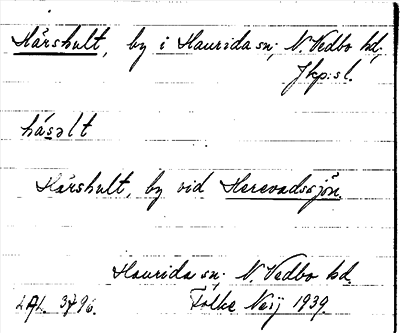 Hårshult, by i Haurida sn; N. Vedbo hd;
Jkp:s l.
håsəlt
Hårshult, by vid Herevadssjön.
Haurida sn. N Vedbo hd.
Folke Neij 1939.